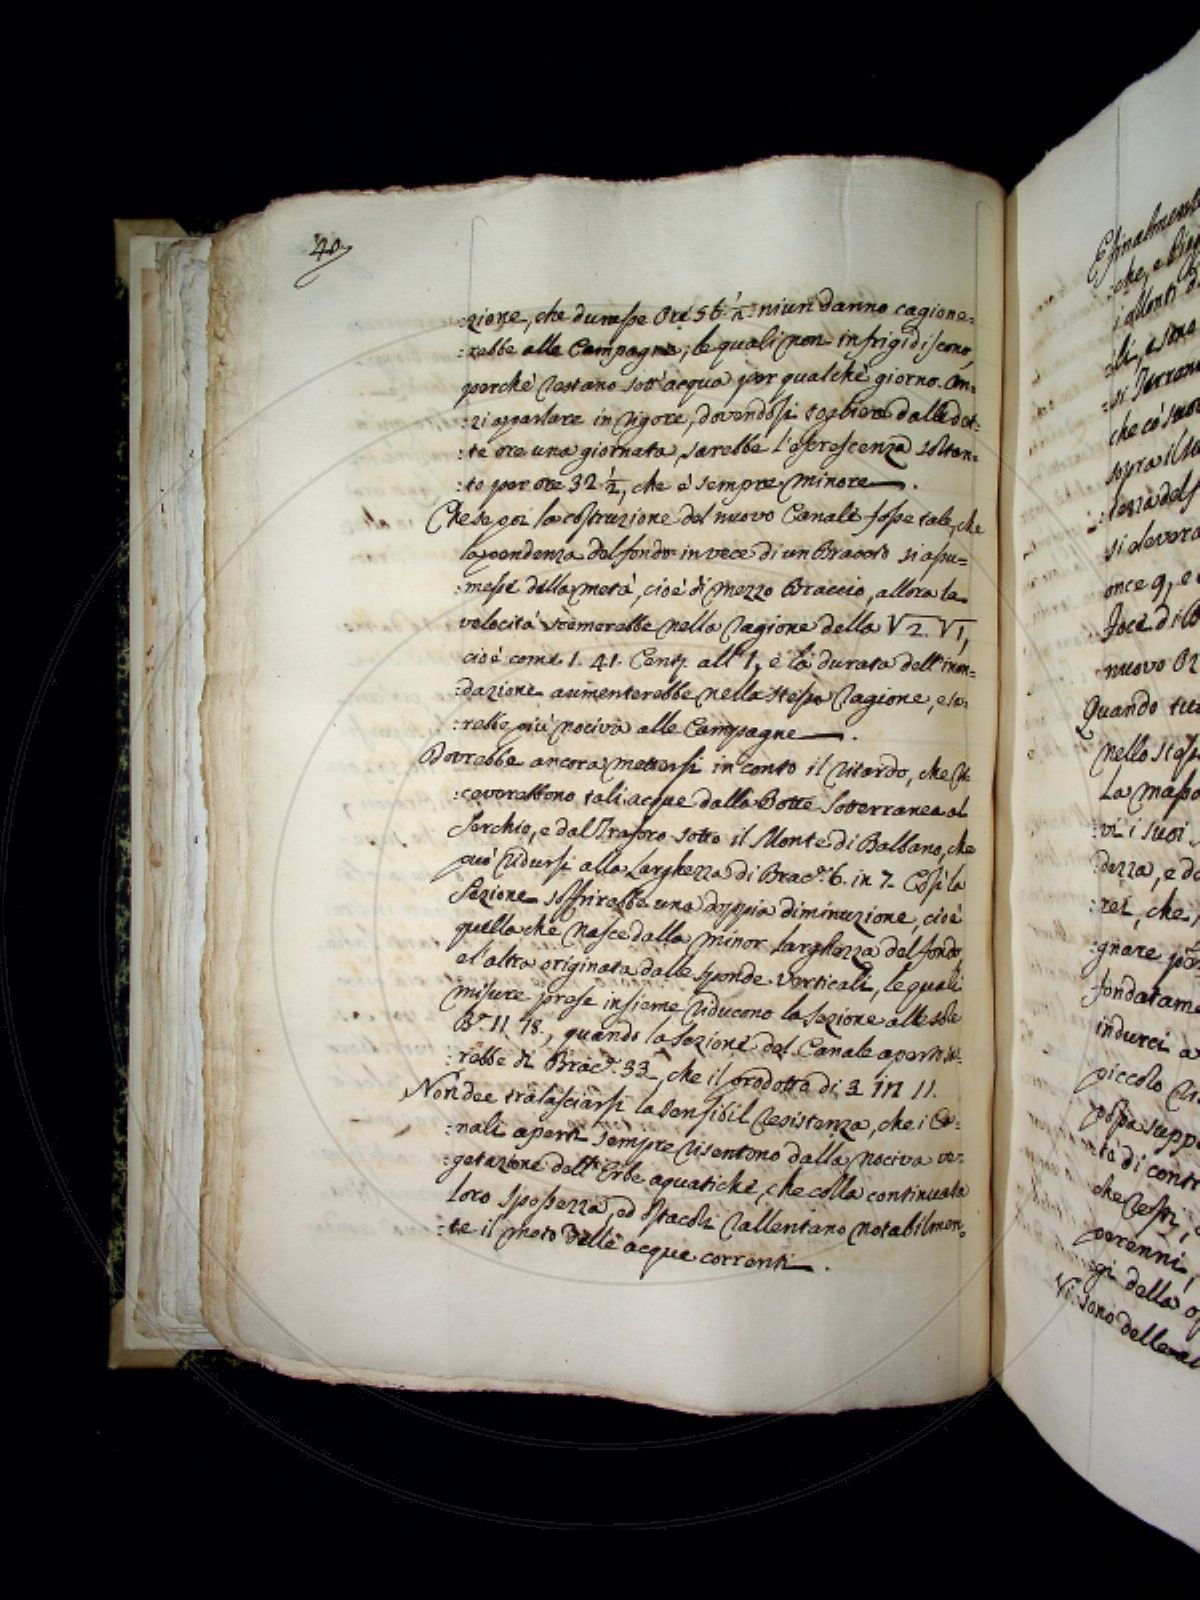 40
:zione, che durasse Ore 56 ½: niun danno cagione:
:rebbe alle Campagne; le quali non infrigidiscono,
perchè restano sott'acqua per qualche giorno. An:
:zi a parlare in rigore, dovendosi togliere dalle det:
:te ore una giornata, sarebbe l'escrescenza soltan:
:to per ore 32 ½, che è sempre minore.
Che se poi la costruzione del nuovo Canale fosse tale, che
la pendenza del fondo in vece di un Braccio si assu=
:messe della metà, cioè di mezzo Braccio, allora la
velocità scemerebbe nella ragione della √2. √1,
cioè come 1. 41. Cent. all' 1, e la durata dell'inon:
:dazione aumenterebbe nella stessa ragione, e sa:
:rebbe più nociva alle Campagne.
Dovrebbe ancora mettersi in conto il ritardo, che ri
:ceverebbono tali acque dalla Botte Sotterranea al
Serchio, e dal Traforo sotto il Monte di Balbano, che
può ridursi alla larghezza di Brac.ª 6. in 7. Così la
Sezione soffrirebbe una doppia diminuzione, cioè
quella che nasce dalla minor larghezza del fondo,
e l'altra originata dalle sponde verticali, le quali
misure prese insieme riducono la Sezione alle sole
B.ª 11. 18., quando la Sezione del Canale aperto sa:
:rebbe di Brac.ª 33, che il prodotto di 3 in 11.
Non dee tralasciarsi la sensibil resistenza, che i Ca:
:nali aperti sempre risentono dalla nociva ve:
:getazione dell'Erbe aquatiche, che colla continuata
loro spossezza, ed ostacoli rallentano notabilmen:
:te il moto delle acque correnti.
E finalmente
:che, e
i Monti
:li, e
:si Terren
sopra il
si dovera
once 9, e
Foce di
nuovo
Quando tut
nello stes
La massa
:vi i suoi
:rei, che,
:gnare
fondatame
indurci a
piccolo
possa supp
:tà di contr
che
perenni,
:gi della
Vi sono delle